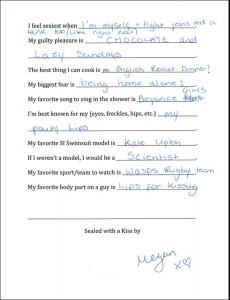 I feel sexiest when I'm myself + tight jeans and a
tank top (like right now)
My guilty pleasure is CHOCOLATE and
Lazy Sundays
The best thing I can cook is an English Roast Dinner!
My biggest fear is being home alone!
My favorite song to sing in the shower is Beyonce Girls
I'm best known for my (eyes, freckles, hips, etc.) my
pouty lips
My favorite SI Swimsuit model is Kate Upton
If I weren't a model, I would be a Scientist
My favorite sport/team to watch is Wasps Rugby team
My favorite body part on a guy is Lips for kissing
Sealed with a Kiss by
Megan
x♡